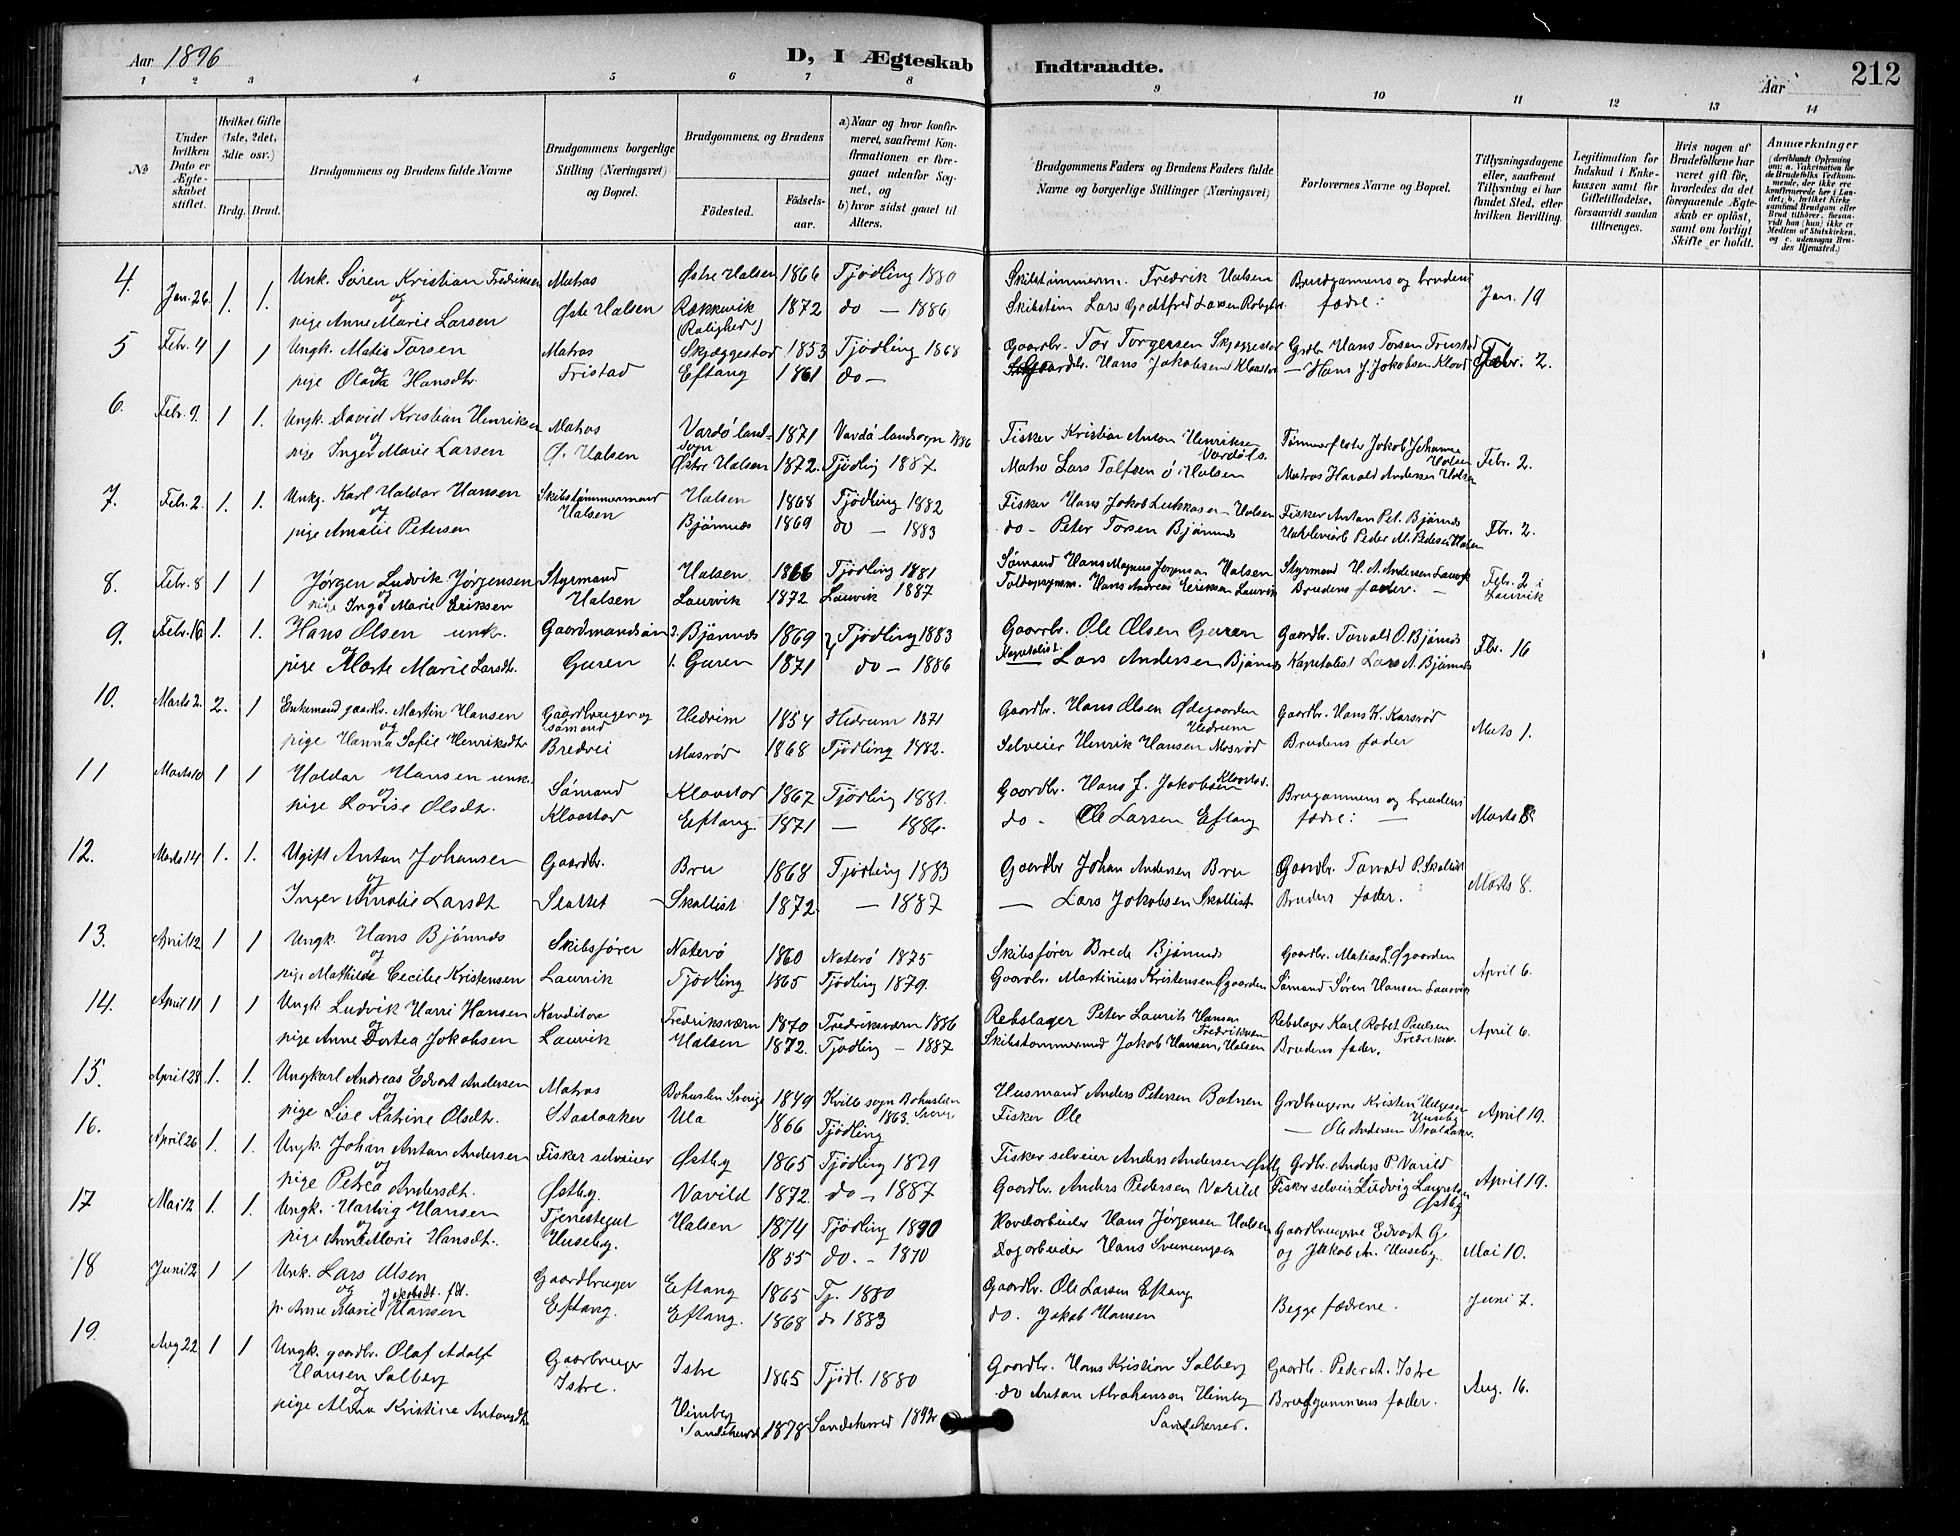 Aar 1896
D, I Ægteskab Indtraadte.
Aar
212
1 2 3 4 5 6 7 8 9 10 11 12 13 14
No
Under hvilken Dato er Ægteskabet stiftet.
Hvilket Gifte (1ste, 2det, 3die osv.)
Brdg. Brud.
Brudgommens og Brudens fulde Navne
Brudgommens borgerlige Stilling (Næringsvei) og Bopæl.
Brudgommens og Brudens
Fødested.
Fødsels-aar.
a) Naar og hvor konfirmeret, saafremt Konfirmationen er foregaaet udenfor Sognet, og
b) hvor sidst gaaet til Alters.
Brudgommens Faders og Brudens Faders fulde Navne og borgerlige Stillinger (Næringsvei)
Forlovernes Navne og Bopæl.
Tillysningsdagene eller, saafremt Tillysning ei har fundet Sted, efter hvilken Bevilling.
Legitimation for Indskud i Enkekassen samt for Giftetilladelse, forsaavidt saadan tiltrænges.
Hvis nogen af Brudefolkene har været gift før, hvorledes da det foregaaende Ægteskab er opløst, samt om lovligt Skifte er holdt.
Anmærkninger
(deriblandt Oplysning om: a. Vakcination for de Brudefolks Vedkommende, der ikke ere konfirmerede her i Landet; b. hvilket Kirkesamfund Brudgom eller Brud tilhører, forsaavidt han (hun) ikke er Medlem af Statskirken, og c. udensogns Brudes Hjemsted.)
4. Jan. 26. 1. 1. Unk. Søren Kristian Fredriksen Matros Østre Halsen 1866 Tjødling 1880 Skibstømmerm. Fredrik Halsen Brudgommens og brudens Jan. 19
og
pige Anne Marie Larsen Østre Halsen Rækkevik 1872 do — 1886 Skibstøm Lars Godtfred Larsen fædre:
(Rolighed)
5 Febr. 4 1 1 Ungk. Matis Torsen Matros Skjæggestad 1853 Tjødling 1868 Gaardbr. Tor Torgersen Skjeggestad Grdbr Hans Torsen Febr. 2.
og
pige Olava Hansdtr. Tristad Eftang 1861 do — Gaardbr. Hans Jakobsen Klaastad — Hans J. Jakobsen
6. Febr. 9. 1 1. Ungk. David Kristian Henriksen Matros Vardø land- 1871 Vardø landsogn 1886 Fisker Kristian Anton Henriksen Jakob Johannes Febr. 2.
og sogn Vardø ls. Halsen
pige Inger Marie Larsen Ø. Halsen Østre Halsen 1872. Tjødlig 1887. Matro Lars Tolfsen ø. Halsen Matros Harald Andersen Halsen
7. Febr. 2. 1. 1. Unkg. Karl Haldor Hansen Skibstømmermand Halsen 1868 Tjødling 1882 Fisker Hans Jakob Lukkasen Halsen Fisker Anton Pet. Bjønnes Fbr. 2.
og Halsen
pige Amalie Petersen Bjønnes 1869 do — 1883 do — Peter Torsen Bjønnes Peder M. Pedersen Halsen
8. Febr. 8 1 1 Jørgen Ludvik Jørgensen Styrmand Halsen 1866 Tjødling 1881 Sømand Hans Magnus Jørgensen Halsen Styrmand H. A. Andersen Laurvik Febr. 2 i
og
pige Inga Marie Eriksen Halsen Laurvik 1872 Laurvik 1887 Hans Andreas Eriksen Laurvik Brudens fader. — Laurvik
9. Febr. 16 1. 1. Hans Olsen unk. Gaardmandsøn 2. Bjønnes 1869 Tjødling 1883 Gaardbr. Ole Olsen Guren Gaardbr. Torvald O. Bjønnes Fbr. 16
og
pige Marte Marie Larsdt. Guren 1. Guren 1871 do — 1886 Kapitalist Lars Andersen Bjønnes Kapitalist Lars A. Bjønnes
10. Marts 2. 2. 1 Enkemand gaardbr. Martin Hansen Gaardbruger og Hedrum 1854 Hedrum 1871 Gaardbr. Hans Olsen Ødegaarden Gaardbr. Hans K. Marts 1.
og sømand Hedrum
pige Hanna Sofie Henriksdtr Bredvei Mosrød 1868 Tjødling 1882. Selveier Henrik Hansen Mosrød Brudens fader
11 Marts 10 1 1 Haldor Hansen unk. Sømand Klaastad 1867 Tjødling 1881. Gaardbr. Hans J. Jakobsen Klaastad. Brugommens og brudens Marts 8.
og
pige Lovise Olsdt. Klaastad Eftang. 1871 — 1886. do — Ole Larsen Eftang fædre: —
12. Marts 14 1. 1. Ugift Anton Johansen Gaardbr. Bru 1868 Tjødling 1883 Gaardbr Johan Andersen Bru Gaardbr. Torvald P. Skallist Marts 8.
og
Inger Amalie Larsdt Slottet Skallist 1872. — 1887 — Lars Jakobsen Skallist Brudens fader.
13. April 12 1 1 Ungk. Hans Bjønnes Skibsfører Nøterø 1860 Nøterø 1875 Skibsfører Brede Bjønnes Gaardbr. Matias Øgaarden April 6.
og
pige Mathilde Cecilie Kristensen Laurvik Tjødling 1865 Tjødling 1879. Gaardbr. Martinius Kristensen Øgaarden Sømand Søren Hansen Laurvik
14. April 11 1 1 Ungk Ludvik Harri Hansen Konditore Fredriksværn 1870 Fredriksværn 1886 Rebslager Peter Laurits Hansen Rebslager Karl Robet Paulsen April 6.
og Fredriksv Fredriksv.
pige Anne Dortea Jakobsen Laurvik Halsen 1872. Tjødling — 1887 Skibstømmermd Jakob Hansen, Halsen Brudens fader.
15. April 28 1. 1. Ungkarl Andreas Edvart Andersen Matros Bohuslen Sverige 1849 Kville sogn Bohuslen Husmand Anders Petersen Botnen Grdbrugerne Kristen Helgesen April 19.
og 1863. Sverige Huseby
pige Lise Katrine Olsdtr. Staalaaker Ula 1866 Tjødling Fisker Ole — Ole Andersen Staalaaker.
16. April 26 1. 1. Ungk. Johan Anton Andersen Fisker selveier Østby 1865 Tjødling 1879 Fisker selveier Anders Andersen Østby Grdbr. Anders P. Varild April 19.
og
pige Petrea Andersdt. Østby. Varild 1872. do — 1887 Gaardbr. Anders Pedersen Varild Fisker selveier Ludvig Lauretsen
Østby
17 Mai 12 1. 1. Ungk. Hartvig Hansen Tjenestegut Halsen 1874 Tjødling 1890 Hans Jørgensen Halsen Gaardbrugerne Edvart G. Mai 10.
og
pige Anne Marie Hansdt. Huseby. 1855 do. — 1870 Dagarbeider Hans Svenungsen og Jakob A. Huseby.
18 Juni 12 1 1 Unk. Lars Olsen Gaardbruger Eftang 1865 Tj. 1880 Gaardbr. Ole Larsen Eftang Begge fædrene. Juni 7.
og Jakobsdt. fød.
p. Anne Marie Hansen Eftang. Eftang. 1868 do 1883 do. Jakob Hansen
19. Aug 22 1 1 Ungk. gaardbr. Olaf Adolf Gaarbruger Istre 1865 Tjødl. 1880 Gaardbr. Hans Kristian Solberg Gaardbr. Peder A. Istre Aug. 16.
Hansen Solberg Istre.
og
pige Alma Kristine Antonsdtr Himberg 1878 Sandeherred 1892 do Anton Abrahamsen Himberg Brudgommens fader.
Sandeherred Sandeherred.